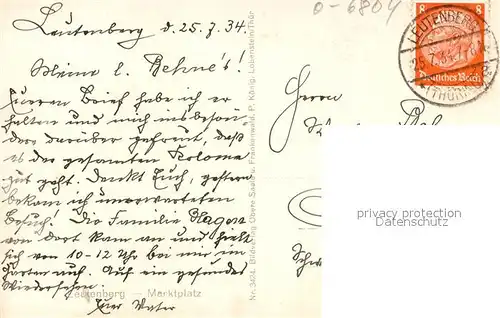 Leutenberg d. 25.7.34.
Meine l. Behne's!
Euren Brief habe ich er-
halten und mich insbeson-
ders darüber gefreut, daß
es der gesamten Kolonne
gut geht. Denkt Euch, gestern
bekam ich unerwarteten
Besuch! Die Familie Hagon
von dort kam an und hielt
sich von 10-12 Uhr bei mir im
Garten auf. Auf ein gesundes
Wiedersehen!
Euer Vater
Leutenberg — Marktplatz
Nr. 3404. Bildverlag Obere Saale u. Frankenwald, P. König, Lobenstein/Thür
0-6804
8 8
Deutsches Reich
LEUTENBERG
(THÜR)
Herrn
privacy protection
Datenschutz